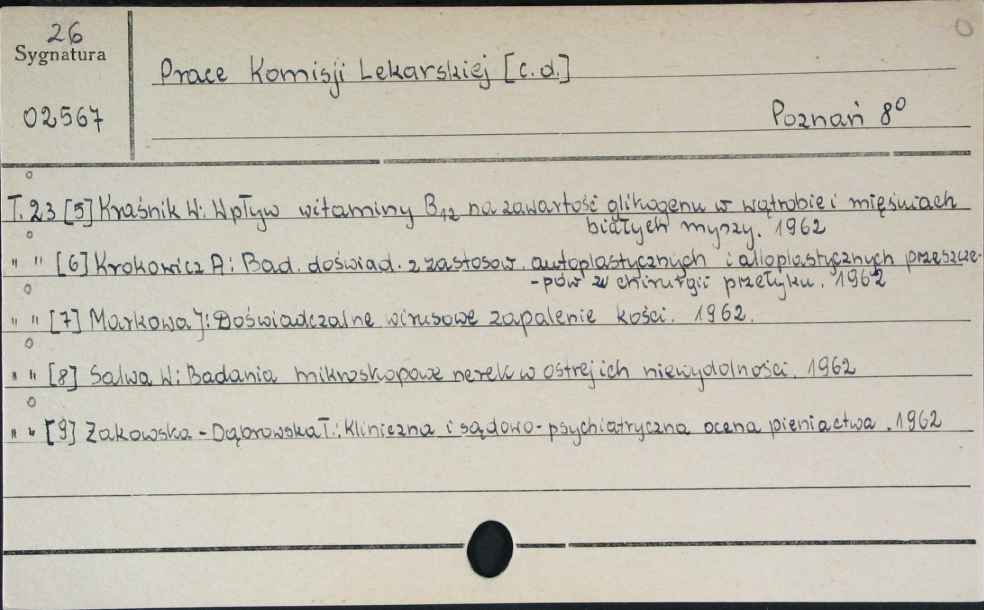 26
Sygnatura
02567
Prace Komisji Lekarskiej [c.d.]
Poznań 8°
T. 23 [5] Kraśnik W: Wpływ witaminy B12 na zawartość glikogenu w wątrobie i mięśniach
białych myszy. 1962
" " [6] Krokowicz A: Bad. doświad. z zastosow. autoplastycznych i alloplastycznych przeszcze-
-pów w chirurgii przełyku. 1962
" " [7] Markowa J: Doświadczalne wirusowe zapalenie kości. 1962.
" " [8] Salwa W: Badania mikroskopowe nerek w ostrej ich niewydolności. 1962
" " [9] Żakowska-Dąbrowska T.: Kliniczna i sądowo-psychiatryczna ocena pieniactwa. 1962